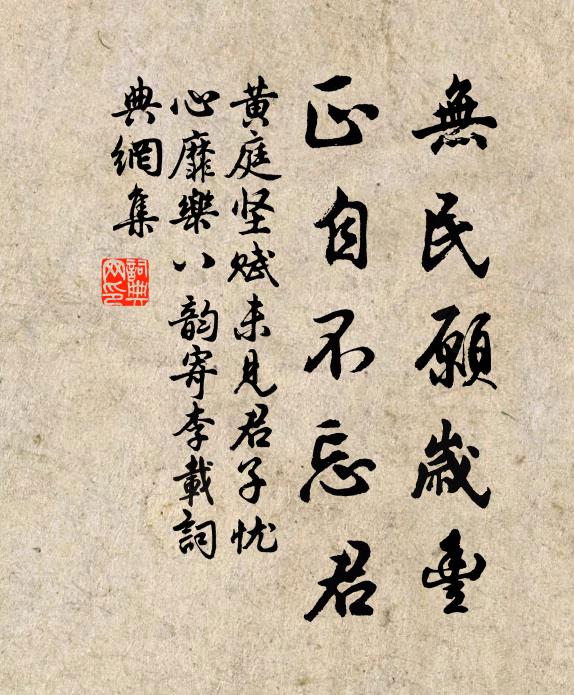 無民願歲豐
正自不忘君
黄庭坚賦未見君子忧
心靡樂八韵寄李載詞
典網集
詞典
网印